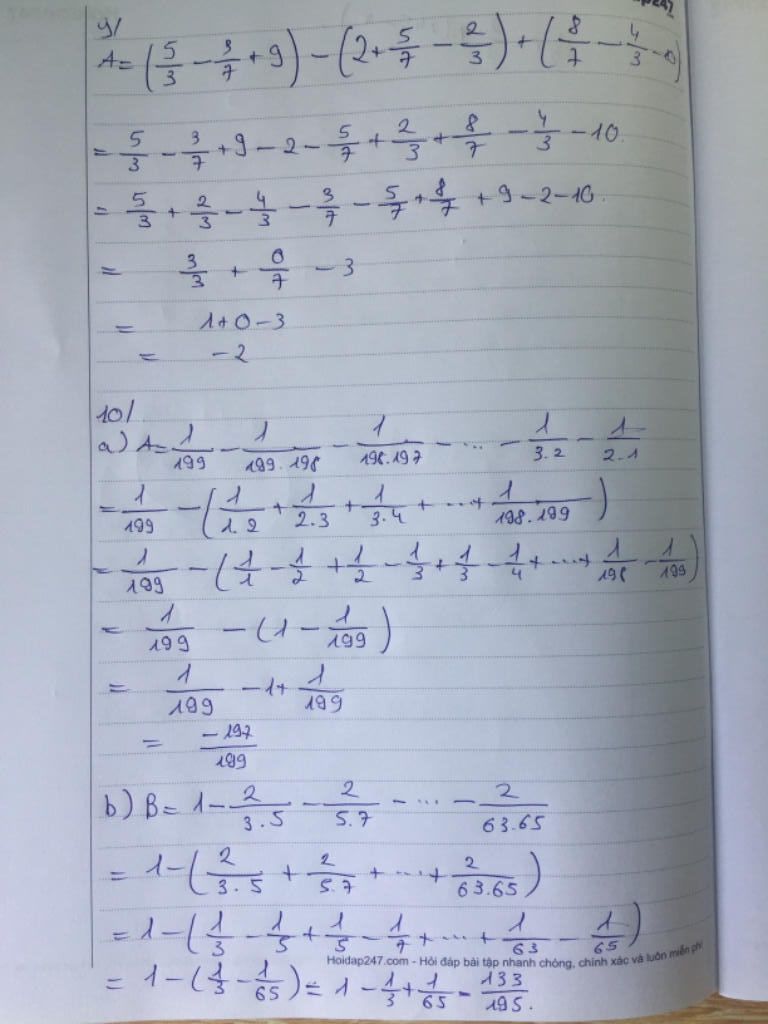 9/
A = (5/3 − 3/7 + 9) − (2 + 5/7 − 2/3) + (8/7 − 4/3 − 10)
= 5/3 − 3/7 + 9 − 2 − 5/7 + 2/3 + 8/7 − 4/3 − 10.
= 5/3 + 2/3 − 4/3 − 3/7 − 5/7 + 8/7 + 9 − 2 − 10.
= 3/3 + 0/7 − 3
= 1 + 0 − 3
= −2
10/
a) A = 1/199 − 1/199.198 − 1/198.197 − ... − 1/3.2 − 1/2.1
= 1/199 − (1/1.2 + 1/2.3 + 1/3.4 + ... + 1/198.199)
= 1/199 − (1/1 − 1/2 + 1/2 − 1/3 + 1/3 − 1/4 + ... + 1/198 − 1/199)
= 1/199 − (1 − 1/199)
= 1/199 − 1 + 1/199
= −197/199
b) B = 1 − 2/3.5 − 2/5.7 − ... − 2/63.65
= 1 − (2/3.5 + 2/5.7 + ... + 2/63.65)
= 1 − (1/3 − 1/5 + 1/5 − 1/7 + ... + 1/63 − 1/65)
Hoidap247.com - Hỏi đáp bài tập nhanh chóng, chính xác và luôn miễn phí
= 1 − (1/3 − 1/65) = 1 − 1/3 + 1/65 = 133/195.